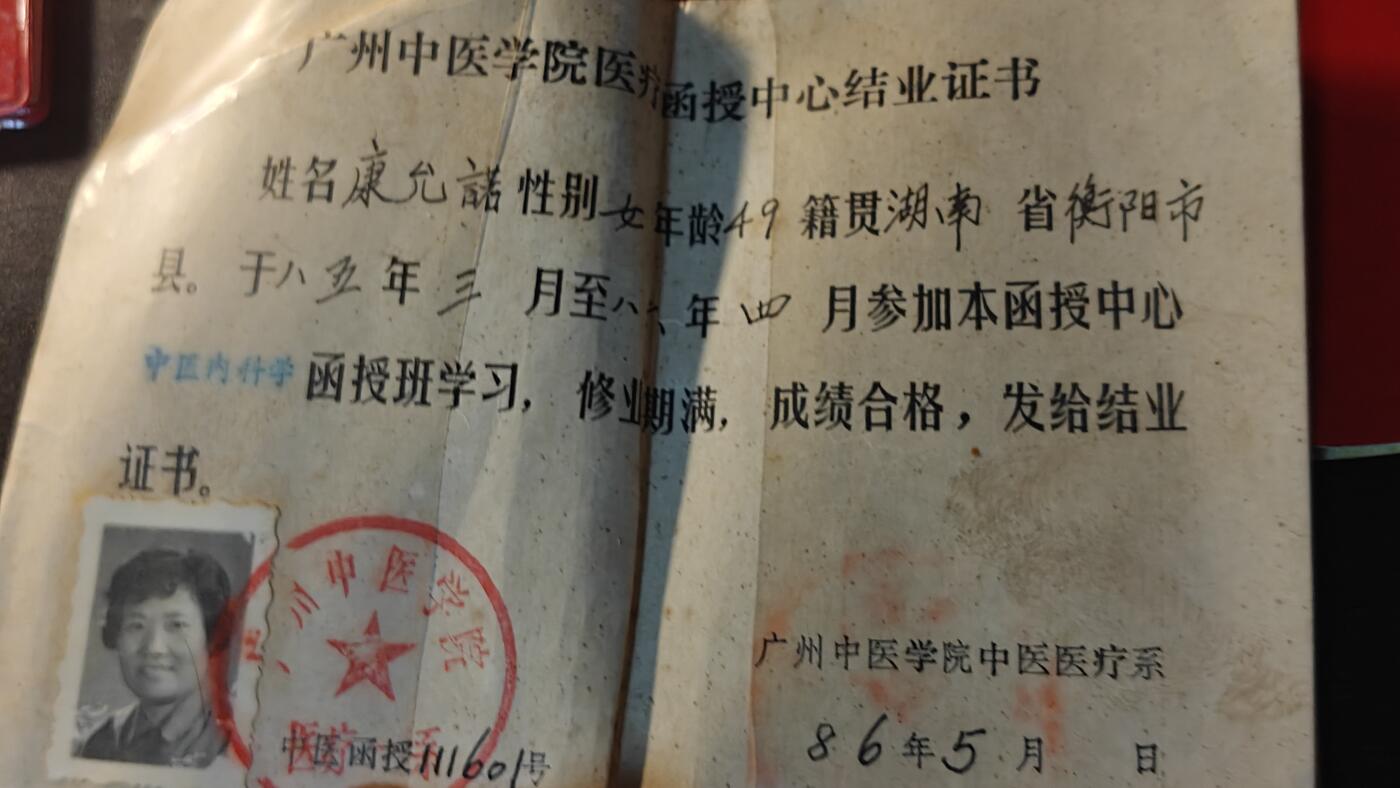 广州中医学院医疗函授中心结业证书
姓名康允諾性别女年龄49籍贯湖南省衡阳市
县。于八五年三月至八六年四月参加本函授中心
中医内科学函授班学习，修业期满，成绩合格，发给结业
证书。
广州中医学院
医疗系
广州中医学院中医医疗系
中医函授111601号
86年5月 日